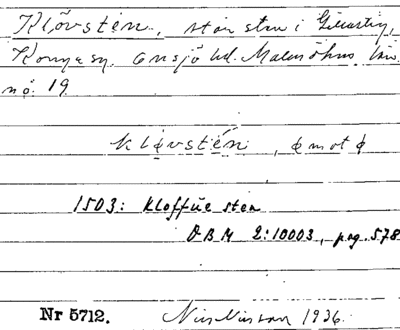 Klövstén, stor sten i
Konga sn. Onsjö hd. Malmöhus län
nö. 19.
klǫvstén, ɸ mot ɸ
1503: kloffue sten
ÖBM 2:10003, pag. 578
Nr 5712. Nils Nilsson 1936.